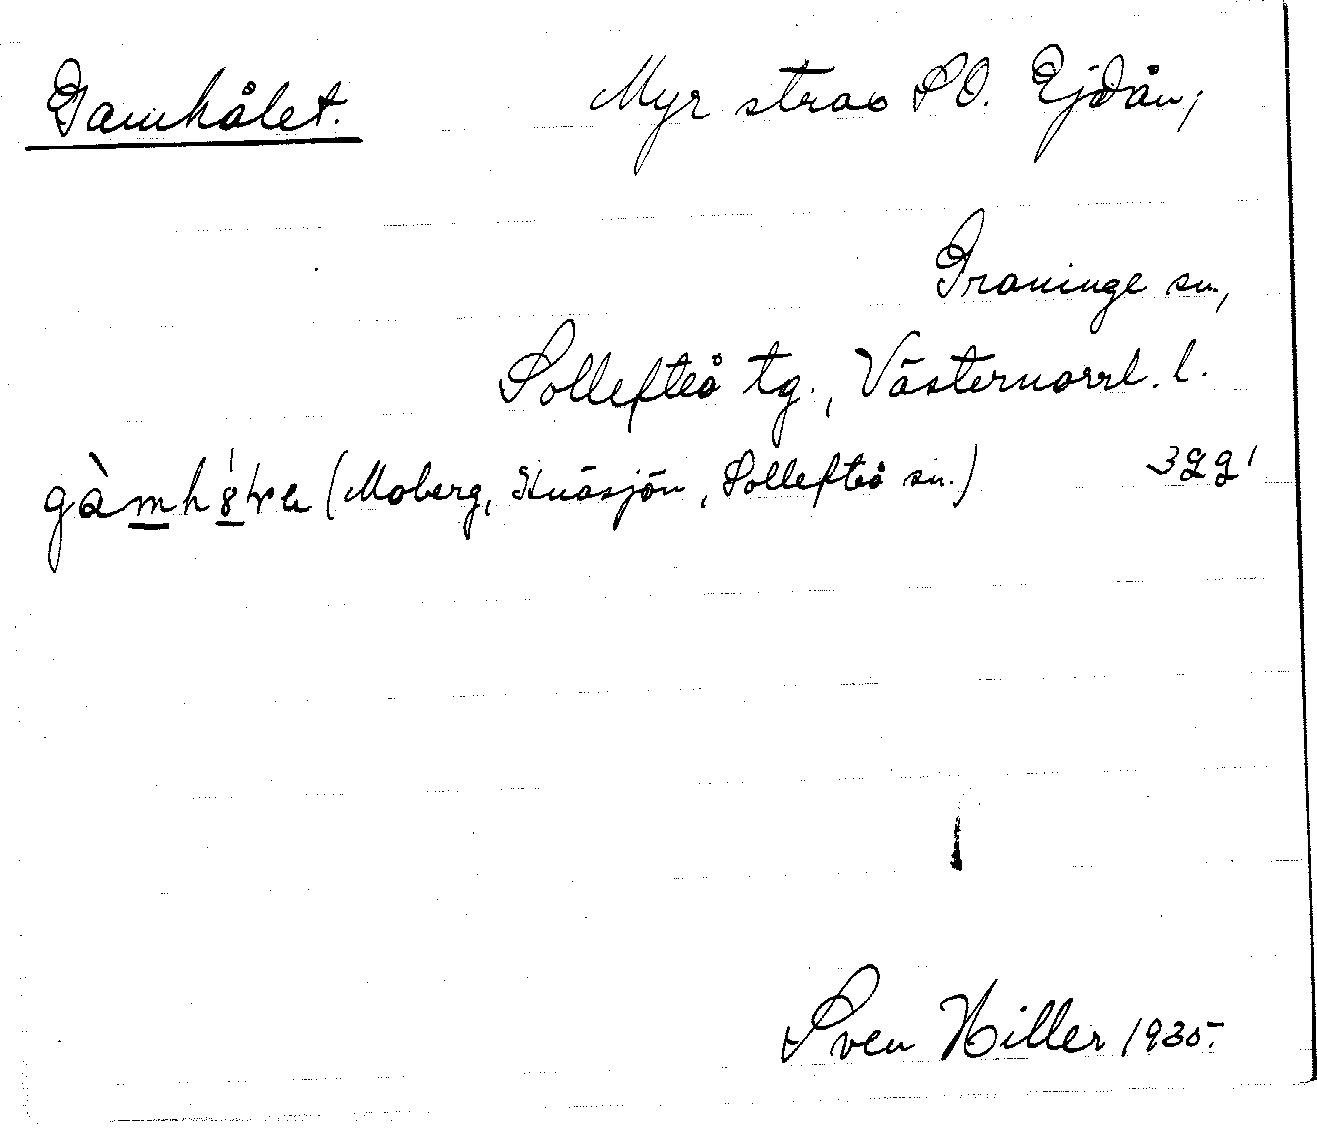 Gamhålet. Myr strax SO. Ejdån,
Graninge sn,
Sollefteå tg., Västernorrl. l.
(Moberg, Knäsjön, Sollefteå sn.)
Sven Hiller 1935.